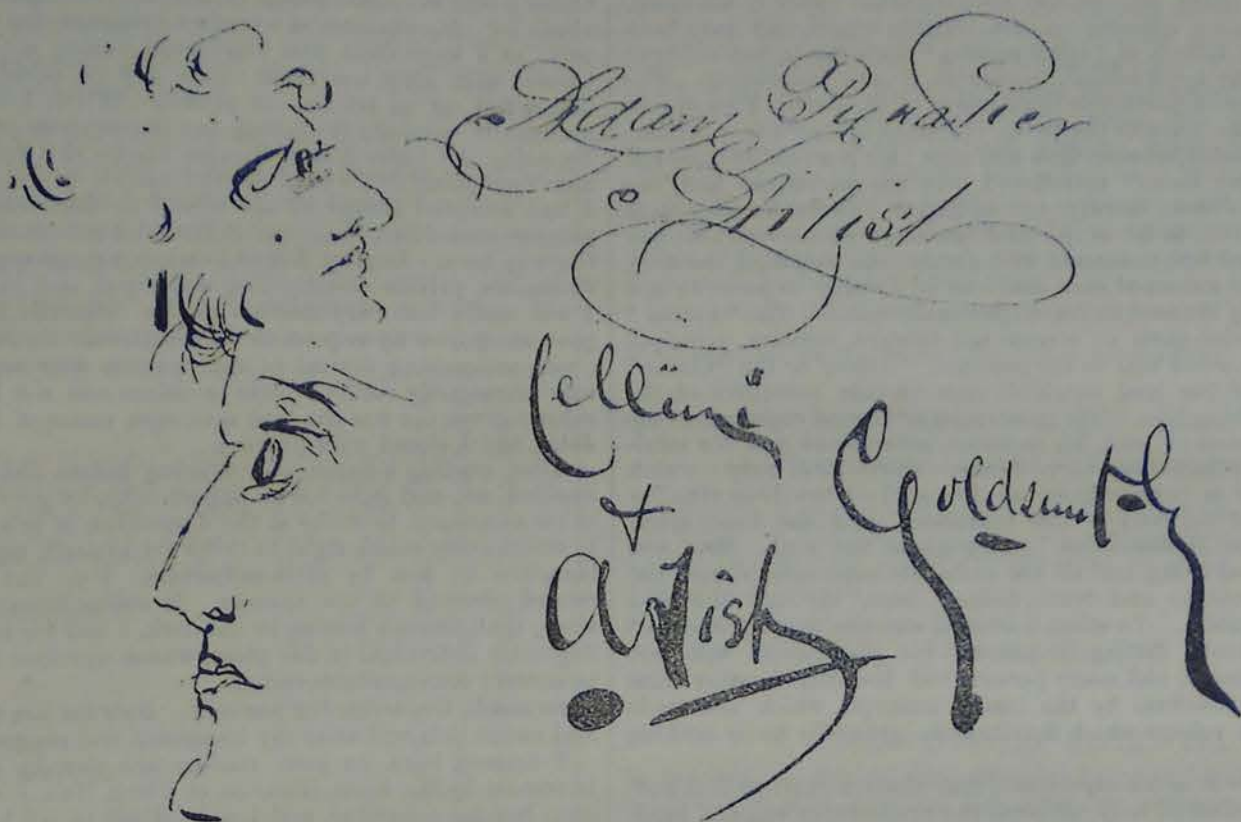 Adam Pynaker
Artist
Cellini
Goldsmith
+
Artist